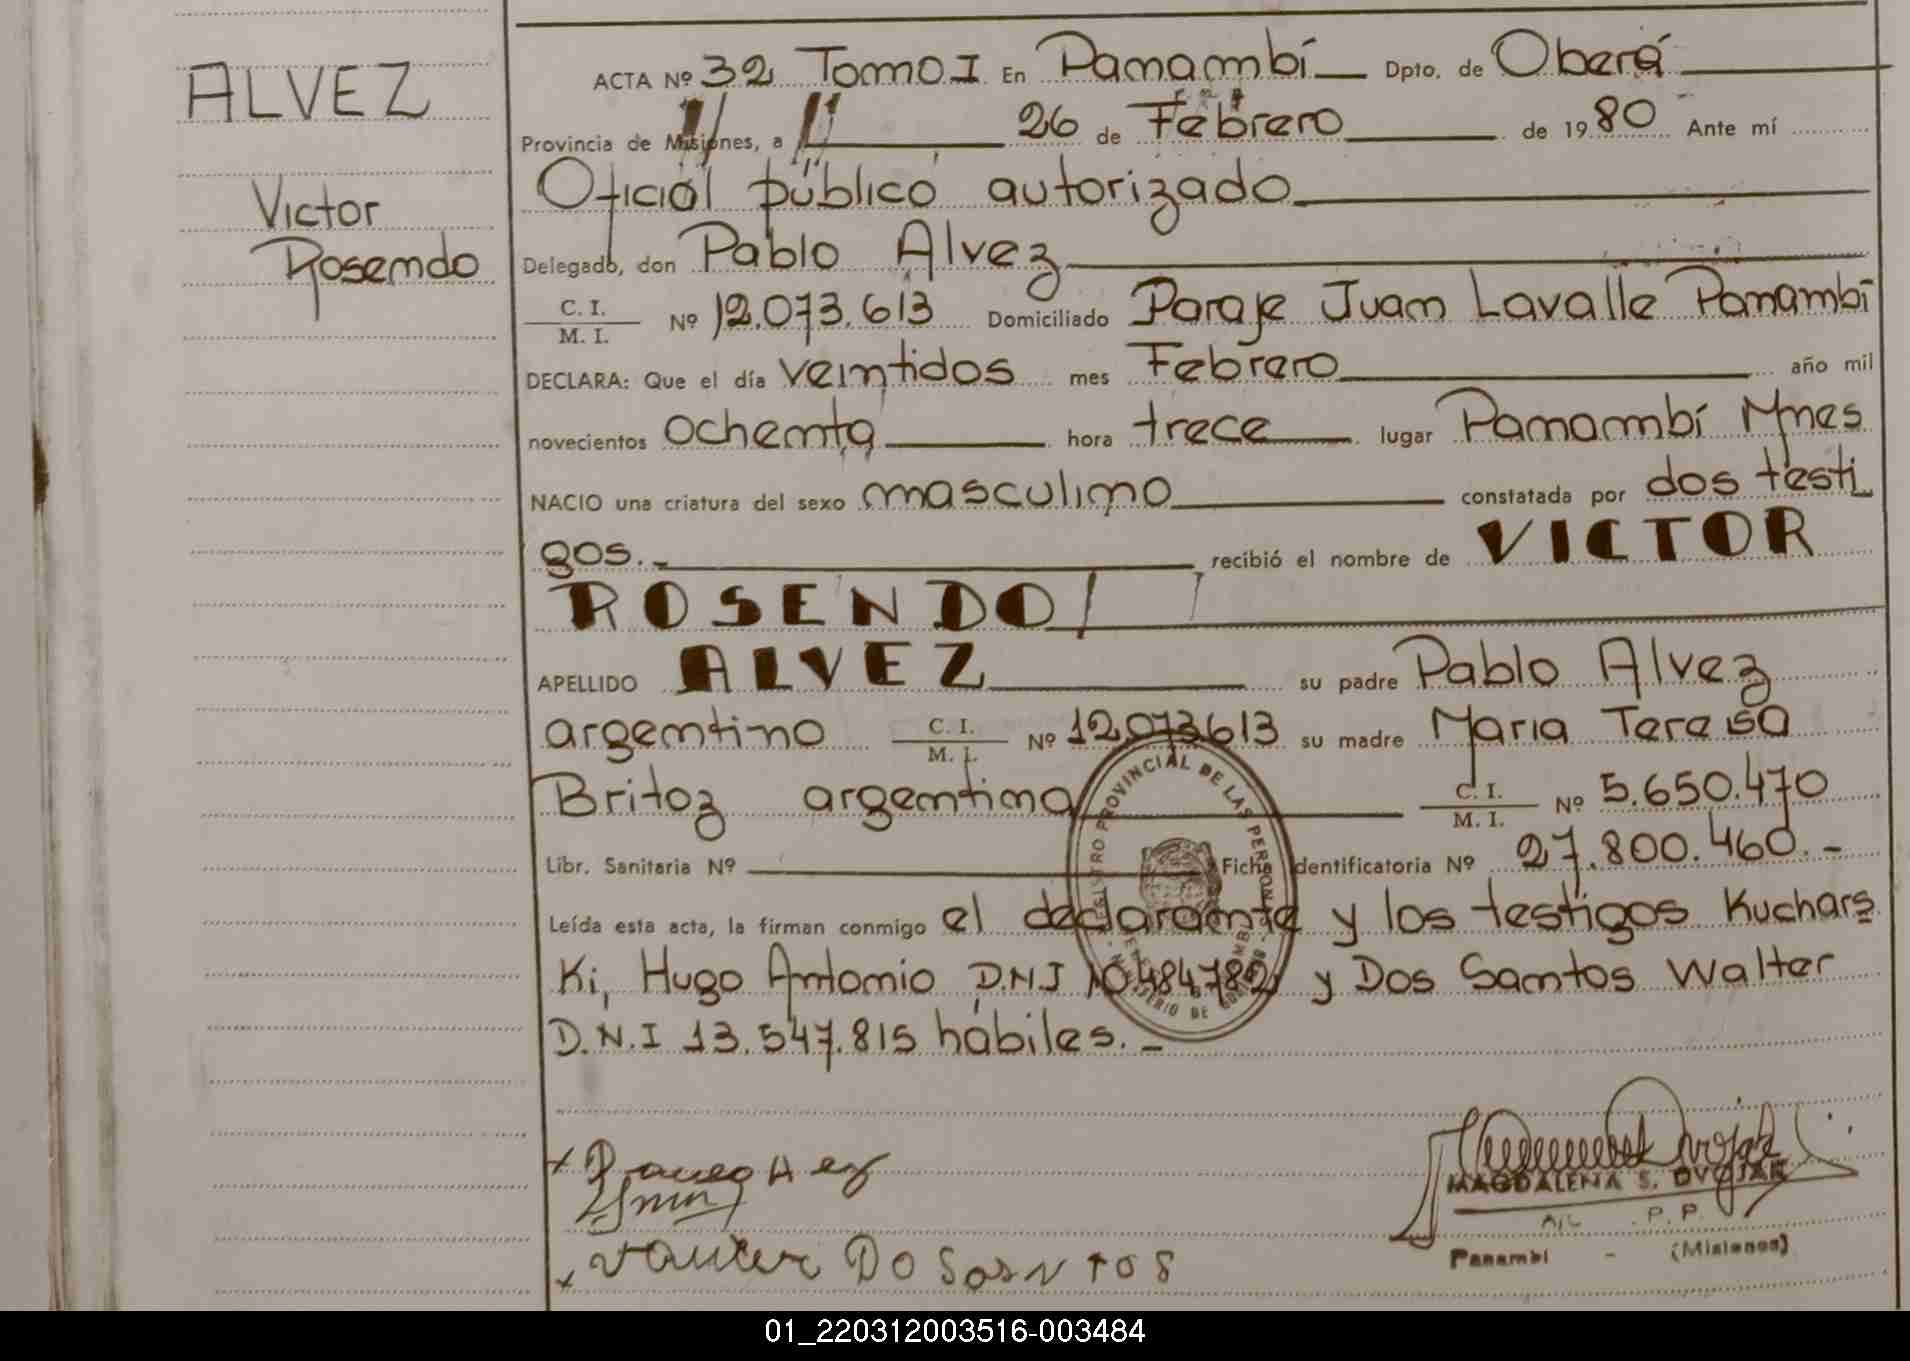 ALVEZ
Victor
Rosendo
ACTA Nº 32 Tomo I En Panambí Dpto. de Oberá
Provincia de Misiones, a 26 de Febrero de 1980 Ante mí
Oficial público autorizado
Delegado, don Pablo Alvez
C. I.
M. I. Nº 12.073.613 Domiciliado Paraje Juan Lavalle Panambí
DECLARA: Que el día veintidos mes Febrero año mil
novecientos ochenta hora trece lugar Panambí Mnes
NACIO una criatura del sexo masculino constatada por dos testi
gos.- recibió el nombre de VICTOR
ROSENDO
APELLIDO ALVEZ su padre Pablo Alvez
argentino C. I. M. I. Nº 12.073613 su madre Maria Teresa
Britoz argentina C. I. M. I. Nº 5.650.470
Libr. Sanitaria Nº Ficha Identificatoria Nº 27.800.460.-
Leída esta acta, la firman conmigo el declarante y los testigos Kuchars
Ki, Hugo Antonio D.N.I y Dos Santos Walter
D.N.I 13.547.815 hábiles.-
REGISTRO PROVINCIAL DE LAS PERSONAS
MINISTERIO DE GOBIERNO
MAGDALENA S. DVOJAK
A/C P. P.
Panambí - (Misiones)
DO SANTOS
01_220312003516-003484